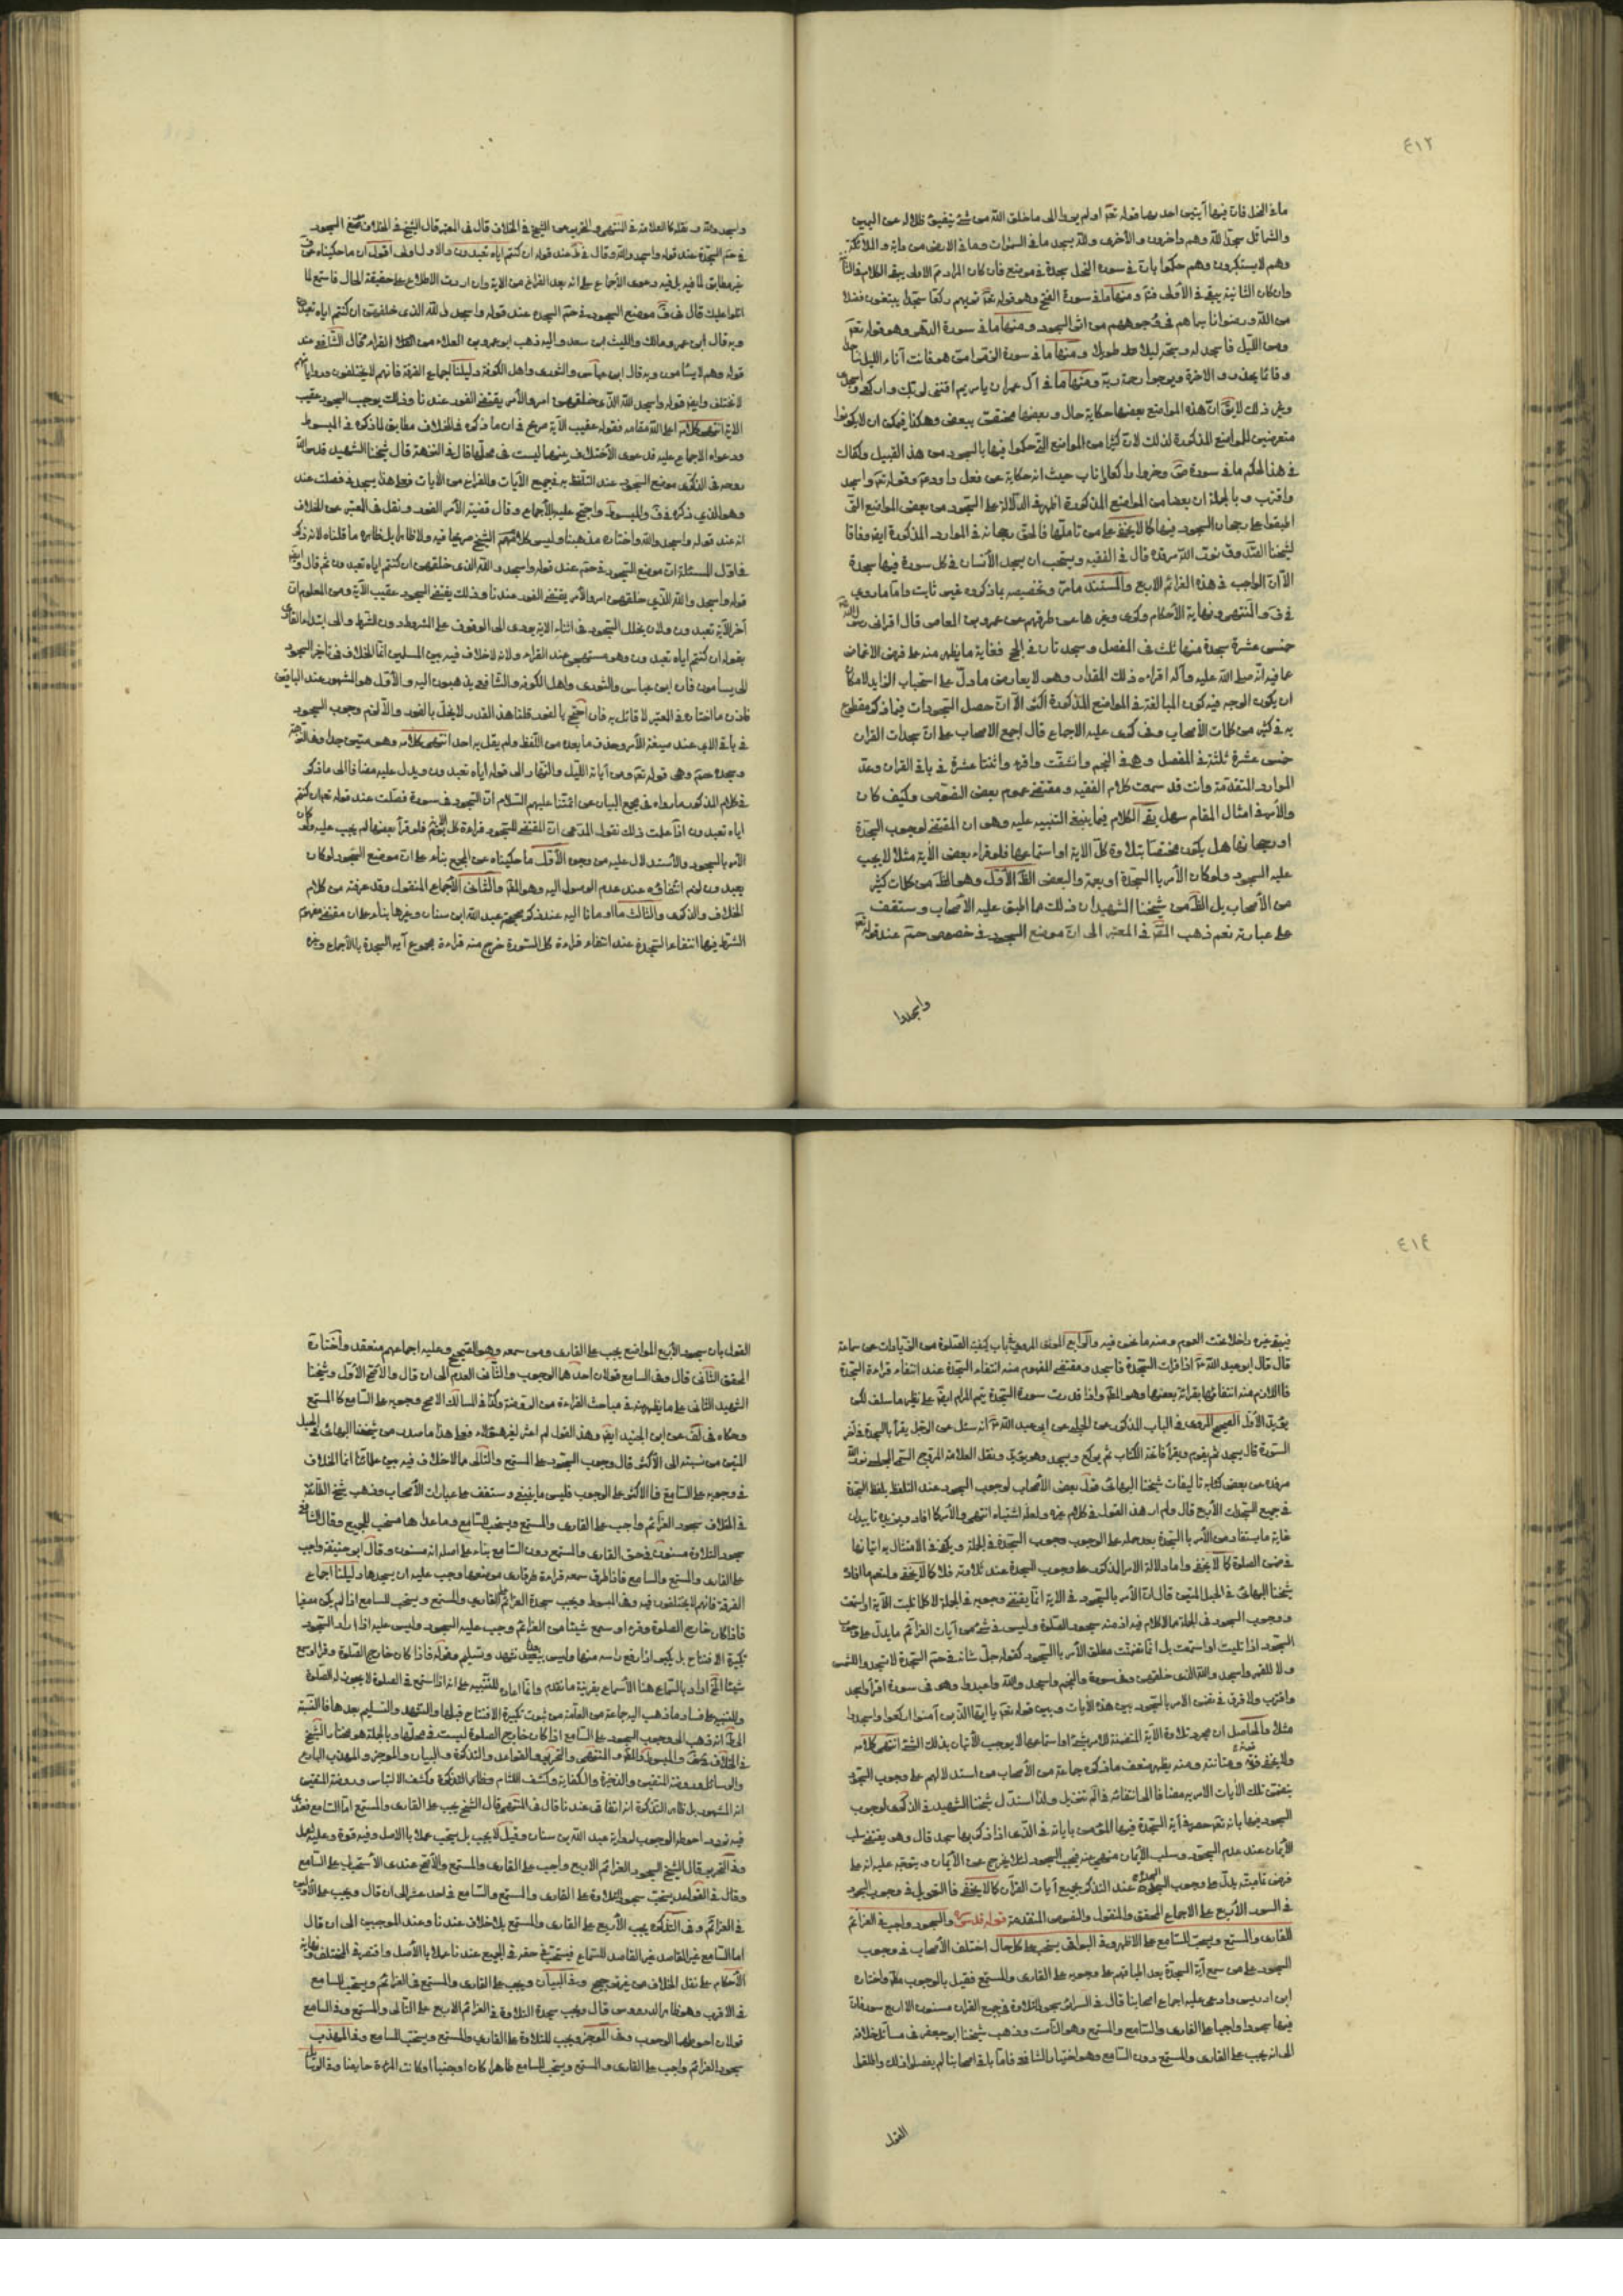 ٤١٢
ما في النحل فان فيها آيتين احديهما قوله تعالى او لم يروا الى ما خلق الله من شئ يتفيؤ ظلاله عن اليمين
والشمائل سجدا لله وهم داخرون والأخرى ولله يسجد ما في السموات وما في الارض من دابة والملائكة
وهم لا يستكبرون وهم حكموا بان في سورة النحل سجدة في موضع فان كان المراد الاولى يبقى الكلام في الثانية
وان كان الثانية يبقى في الأولى ومنها ما في سورة الفتح وهو قوله تعالى تريهم ركعا سجدا يبتغون فضلا
من الله ورضوانا سيماهم في وجوههم من اثر السجود ومنها ما في سورة الدهر وهو قوله تعالى
ومن الليل فاسجد له وسبحه ليلا طويلا ومنها ما في سورة الزمر امن هو قانت آناء الليل ساجدا
وقائما يحذر الاخرة ويرجوا رحمة ربه ومنها ما في آل عمران يا مريم اقنتي لربك واسجدي واركعي
وغير ذلك لا يقال ان هذه المواضع بعضها حكاية حال وبعضها مختص ببعض وهكذا فيمكن ان لا يكونوا
متعرضين للمواضع المذكورة لذلك لان كثيرا من المواضع التي حكموا فيها بالسجود من هذا القبيل
في هذا الحكم ما في سورة ص وخر راكعا واناب حيث انه حكاية عن فعل داود وقوله تعالى واسجد
واقترب وبالجملة ان بعضا من المواضع المذكورة اظهر في الدلالة على السجود من بعض المواضع التي
اطبقوا على رجحان السجود فيها كما لا يخفى على من تاملها فالحق رجحانه في الموارد المذكورة ايضا وفاقا
لشيخنا الصدوق نور الله مرقده قال في الفقيه ويستحب ان يسجد الأنسان في كل سورة فيها سجدة
الا ان الواجب في هذه العزائم الاربع والمستند ما مر وتخصيصه بما ذكروه غير ثابت واما ما روي
في المنتهى ونهاية الأحكام وكرى وغيرها من طرقهم عن عمرو بن العاص قال اقراني رسول الله
خمس عشرة سجدة منها ثلث في المفصل وسجدتان في الحج فغاية ما يظهر منه على فرض الاغماض
عما فيه انه صلى الله عليه وآله اقراءه ذلك المقدار وهو لا يعارض ما دل على استحباب الزايد لامكان
ان يكون الوجه فيه كون المبالغة في المواضع المذكورة اكثر الا ان حصر السجودات فيما ذكره مقطوع
به في كثير من كلمات الأصحاب وفي كرى عليه الاجماع قال اجمع الاصحاب على ان سجدات القران
خمس عشرة ثلثة في المفصل وهي في النجم وانشقت واقرء واثنتا عشرة في باقي القران وعد
الموارد المتقدمة وانت قد سمعت كلام الفقيه ومقتضى عموم بعض النصوص وكيف كان
والأمر في امثال المقام سهل بقى الكلام فيما ينبغى التنبيه عليه وهو ان المقتضى لوجوب السجدة
او رجحانها هل يكون مختصا بتلاوة كل الاية او استماعها فلو قراء بعض الأية مثلا لا يجب
عليه السجود ولو كان الأمر بالسجدة او يعمه والبعض الظاهر الأول وهو الظاهر من كلمات كثير
من الأصحاب بل الظاهر من شيخنا الشهيد ان ذلك مما اطبق عليه الأصحاب وستقف
على عبارته نعم ذهب المحقق في المعتبر الى ان موضع السجود في خصوص حم عند قوله تعالى
واسجدوا
واسجدوا لله ونقله كالعلامة في المنتهى والتحرير من الشيخ في الخلاف قال في المعتبر قال الشيخ في الخلاف موضع السجود
في حم السجدة عند قوله واسجدوا لله وقال في ط عند قوله ان كنتم اياه تعبدون والاول اولى اقول ان ما حكيناه
غير مطابق لما فيه بل فيه دعوى الأجماع على انه بعد الفراغ من الاية وان اردت الاطلاع على حقيقة الحال فاستمع لما
اتلو عليك قال في ف موضع السجود في حم السجدة عند قوله واسجدوا لله الذي خلقهن ان كنتم اياه تعبدون
وبه قال ابن عمر ومالك والليث ابن سعد واليه ذهب ابو عمرو بن العلاء من القراء وقال الشافعي عند
قوله وهم لا يسأمون وبه قال ابن عباس والثورى واهل الكوفة دليلنا اجماع الفرقة فانهم لا يختلفون
لا تختلف وايضا قوله واسجدوا لله الذي خلقهن امر والأمر يقتضى الفور عندنا وذلك يوجب السجود عقيب
الاية انتهى كلامه اعلى الله مقامه فقوله عقيب الآية صريح في ان ما ذكره في الخلاف مطابق لما ذكره في المبسوط
ودعواه الاجماع عليه قال شيخنا الشهيد قدس الله
روحه في الذكرى موضع السجود عند التلفظ به في جميع الآيات والفراغ من الأيات فعلى هذا يسجد في فصلت عند
وهو الذي ذكره في ف والمبسوط واحتج عليه بالأجماع وقال قضية الأمر الفور ونقل في المعتبر عن الخلاف
انه عند قوله واسجدوا لله واختاره مذهبنا وليس كلام الشيخ صريحا فيه ولا ظاهرا بل ظاهره ما قلناه لانه ذكر
في اول المسئلة ان موضع السجود في حم عند قوله واسجدوا لله الذي خلقهن ان كنتم اياه تعبدون ثم قال وايضا
قوله واسجدوا لله الذي خلقهن امر والأمر يقتضى الفور عندنا وذلك يقتضى السجود عقيب الآية ومن المعلوم ان
آخر الأية تعبدون ولان تخلل السجود في اثناء الاية يؤدى الى الوقوف على المشروط دون الشرط والى ابتداء القارى
بقوله ان كنتم اياه تعبدون وهو مستهجن عند القراء ولانه لا خلاف فيه بين المسلمين انما الخلاف في تاخير السجود
الى يسامون فان ابن عباس والثورى واهل الكوفة والشافعى يذهبون اليه والأول هو المشهور عند الباقين
فاذن ما اختاره في المعتبر لا قائل به فان احتج بالفور قلنا هذا القدر لا يخل بالفور والا لزم وجوب السجود
في باقى الاى عند صيغة الأمر وحذف ما بعده من اللفظ ولم يقل به احد انتهى كلامه وهو متين جدا
وسجدة حم وهى قوله تعالى ومن آياته الليل والنهار الى قوله اياه تعبدون ويدل عليه مضافا الى ما ذكر
في كلام المذكور ما رواه في مجمع البيان عن ائمتنا عليهم السلام ان السجود في سورة فصلت عند قوله تعالى ان كنتم
اياه تعبدون اذا علمت ذلك نقول المدعى ان المقتضى للسجود قراءة كل الاية فلو قرأ بعضها لم يجب عليه ولو كان
الأمر بالسجود والأستدلال عليه من وجوه الأول ما حكيناه عن المجمع بناء على ان موضع السجود لو كان
يعبدون لزم انتفاؤه عند عدم الوصول اليه وهو المدعى والثانى الأجماع المنقول وقد عرفته من كلام
الخلاف والذكرى والثالث ما اومانا اليه عند ذكر صحيحة عبد الله ابن سنان وغيرها بناء على ان مقتضى مفهوم
الشرط فيها انتفاء السجدة عند انتفاء قراءة كل السورة خرج منه قراءة مجموع آية السجدة بالأجماع وغيره
٤١٤
فيبقى غيره داخلا تحت العموم ومنه ما نحن فيه والرابع الموثق المروى في باب كيفية الصلوة من الزيادات عن سماعة
قال قال ابو عبد الله ع اذا قرات السجدة فاسجد ومقتضى المفهوم منه انتفاء السجدة عند انتفاء قراءة السجدة
فاللازم منه انتفائها بقرائة بعضها وهو المدعى واذا قدرت سورة السجدة يتم المرام ايضا على نظير ما سلف لكن
يؤيد الأول الصحيح المروى في الباب المذكور عن الحلبى عن ابى عبد الله ع انه سئل عن الرجل يقرأ بالسجدة في آخر
السورة قال يسجد ثم يقوم ويقرأ فاتحة الكتاب ثم يركع ويسجد وهو يؤيد ونقل العلامة المروج السمى المجلسى نور الله
مرقده من بعض تاليفات شيخنا البهائى قول بعض الأصحاب لوجوب السجود عند التلفظ بلفظ السجدة
في جميع السجدات الأربع قال ولم ار هذا القول في كلام غيره ولعله اشتباه انتهى والأمر كما افاد
غاية ما يستفاد من الأمر بالسجدة بعد حمله على الوجوب وجوب السجدة في الجملة ويكفى في الامتثال به اتيانها
في ضمن الصلوة كما لا يخفى واما دلالة الامر المذكور على وجوب السجدة عند تلاوته فلا كما لا يخفى ولنعم ما افاد
شيخنا البهائى في الحبل المتين قال ان الأمر بالسجود في الآية انما يقتضى وجوبه في الجملة لا كلما تليت الآية او استمعت
ووجوب السجود في الجملة مما لا كلام فيه اذ منه سجود الصلوة وليس في شئ من آيات العزائم ما يدل على وجوب
السجود اذا تليت او استمعت بل انما تضمنت مطلق الأمر بالسجود كقوله جل شانه في حم السجدة لا تسجدوا للشمس
ولا للقمر واسجدوا لله الذى خلقهن وفي سورة والنجم واسجدوا لله واعبدوا وهو في سورة اقرأ واسجد
واقترب ولا فرق في ضمن الامر بالسجود بين هذه الأيات وبين قوله تعالى يا ايها الذين آمنوا اركعوا واسجدوا
مثلا والحاصل ان مجرد تلاوة الآية المتضمنة للامر بشئ او استماعها لا يوجب الأتيان بذلك الشئ انتهى كلامه
ولا يخفى قوته ومتانته ومنه يظهر ضعف ما ذكره جماعة من الأصحاب من استدلالهم على وجوب السجود
بتضمن تلك الأيات الامر به مضافا الى انتقاضه ولذا استدل شيخنا الشهيد في الذكرى لوجوب
السجود فيها بانه تعالى حصر في آية السجدة فيها المؤمن باياته في الذى اذا ذكر بها سجد قال وهو يقتضى سلب
الأيمان عند عدم السجود وسلب الأيمان منهى عنه فيجب السجود لئلا يخرج عن الأيمان ويتوجه عليه انه على
فرض تماميته يدل على وجوب السجود عند التذكر بجميع آيات القرآن كما لا يخفى فالتعويل في وجوب السجود
في السور الأربع على الاجماع المحقق والمنقول والنصوص المتقدمة قوله قدس سره والسجود واجب في العزائم
للقارى والمستمع ويستحب للسامع على الاظهر وفي البواقى يستحب على كل حال اختلف الأصحاب في وجوب
السجود على من سمع آية السجدة بعد اطباقهم على وجوبه على القارى والمستمع فقيل بالوجوب مطلقا واختاره
ابن ادريس وادعى عليه اجماع اصحابنا قال في السرائر سجود التلاوة في جميع القران مسنون الا اربع سور فان
فيها سجودا واجبا على القارى والسامع والمستمع وهو الثابت وذهب شيخنا ابو جعفر في مسائل خلافه
الى انه يجب على القارى والمستمع دون السامع وهو اختيار الشافعى فاما باقى اصحابنا لم يفصلوا ذلك واطلقوا
القول
القول بان سجود الأربع المواضع يجب على القارى ومن سمعه وهو الصحيح وعليه اجماعهم منعقد واختاره
المحقق الثانى قال وفى السامع قولان احدهما الوجوب والثانى العدم الى ان قال والارجح الأول وشيخنا
الشهيد الثانى على ما يظهر منه في مباحث القراءة من الروضة وكذا في المسالك الاصح وجوبه على السامع كالمستمع
وحكاه في لف عن ابن الجنيد ايضا وهذا القول لم اعثر لغير هؤلاء فعلى هذا ما صدر من شيخنا البهائى في الحبل
المتين من نسبته الى الأكثر قال وجوب السجود على المستمع والتالى مما لا خلاف فيه بين علمائنا انما الخلاف
في وجوبه على السامع فالاكثر على الوجوب فليس ما ينبغى وستقف على عبارات الأصحاب وذهب شيخ الطائفة
في الخلاف سجود العزائم واجب على القارى والمستمع ويستحب للسامع وما عداها مستحب للجميع وقال الشافعى
سجود التلاوة مسنون في حق القارى والمستمع دون السامع بناء على اصله انه مسنون وقال ابو حنيفة واجب
على القارى والمستمع والسامع دليلنا اجماع
الفرقة فانهم لا يختلفون فيه وفى المبسوط ويجب سجدة العزائم على القارى والمستمع ويستحب للسامع اذا لم يكن مصغيا
فاذا كان خارج الصلوة وقرء او سمع شيئا من العزائم وجب عليه السجود وليس عليه اذا اراد السجود
تكبيرة الافتتاح بل يكبر اذا رفع راسه منها وليس بعده تشهد وتسليم وقوله فاذا كان خارج الصلوة وقرا او سمع
شيئا الخ اراد بالسماع هنا الأسماع بقرينة ما تقدم
وللتنبيه على فساد ما ذهب اليه جماعة من العامة من ثبوت تكبيرة الافتتاح قبلها والتشهد والتسليم بعدها فالنسبة
اليه انه ذهب الى وجوب السجود على السامع اذا كان خارج الصلوة ليست في محلها وبالجملة هو مختار الشيخ
في الخلاف والمبسوط والمنتهى والتحرير والقواعد والتذكرة والبيان والموجز والمهذب البارع
والوسائل وروضة المتقين والذخيرة والكفاية وكشف اللثام وظاهر التذكرة وكشف الالتباس وروضة المتقين
انه المشهور بل ظاهر التذكرة انه اتفاقى عندنا قال في المنتهى قال الشيخ يجب على القارى والمستمع اما السامع فعندى
فيه تردد احوطه الوجوب لرواية عبد الله بن سنان وقيل لا يجب بل يستحب عملا بالاصل وفيه قوة وعليه اعمل
وفى التحرير قال الشيخ السجود العزائم الاربع واجب على القارى والمستمع والأرجح عندى الأستحباب على السامع
وقال في القواعد يستحب سجود التلاوة على القارى والمستمع والسامع في احد عشر الى ان قال ويجب على الأولين
في العزائم وفى التذكرة يجب الأربع على القارى والمستمع بلا خلاف عندنا وعند الموجبين الى ان قال
اما السامع غير القاصد للسماع فيستحب في حقه في الجميع عندنا عملا بالأصل واقتصر في المختلف ونهاية
الأحكام على نقل الخلاف من غير ترجيح وفى البيان ويجب على القارى والمستمع في العزائم ويستحب للسامع
في الاقرب وهو ظاهر الدروس قال ويجب سجدة التلاوة في العزائم الاربع على التالى والمستمع وفى السامع
قولان احوطهما الوجوب وفى الموجز ويجب للتلاوة على القارى والمستمع ويستحب للسامع وفى المهذب
سجود العزائم واجب على القارى والمستمع ويستحب للسامع طاهرا كان او جنبا او كانت المرءة حايضا